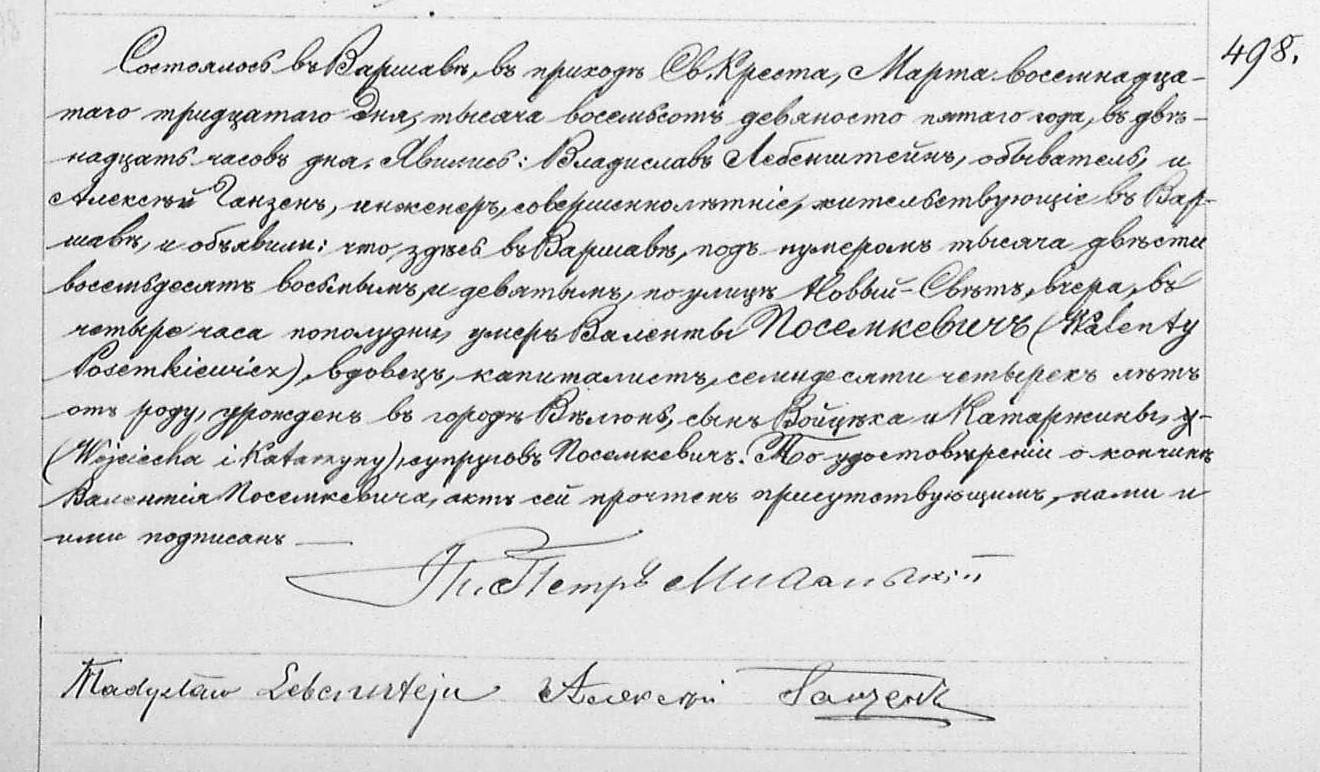 498.
Состоялось въ Варшавѣ, въ приходѣ Св. Креста, Марта восемнадца-
таго тридцатаго дня, тысяча восемьсотъ девяносто пятаго года, въ двѣ-
надцать часовъ дня. Явились: Владиславъ Лебенштейнъ, обыватель, и
Алексѣй Ганзенъ, инженеръ, совершеннолѣтніе, жительствующіе въ Вар-
шавѣ, и объявили: что, здѣсь въ Варшавѣ, подъ нумеромъ тысяча двѣсти
восемьдесятъ восьмымъ и девятымъ, по улицѣ Новый-Свѣтъ, вчера, въ
четыре часа пополудни, умеръ Валенты Посемкевичъ (Walenty
Posemkiewicz), вдовецъ, капиталистъ, семидесяти четырехъ лѣтъ
отъ роду, урожденъ въ городѣ Вѣлюнѣ, сынъ Войцѣха и Катаржины,
(Wojciecha i Katarzyny), супруговъ Посемкевичъ. По удостовѣреніи о кончинѣ
Валентія Посемкевича, актъ сей прочтенъ присутствующимъ, нами и
ими подписанъ —
Петръ
Władysław Lebensztejn Алексѣй Ганзенъ